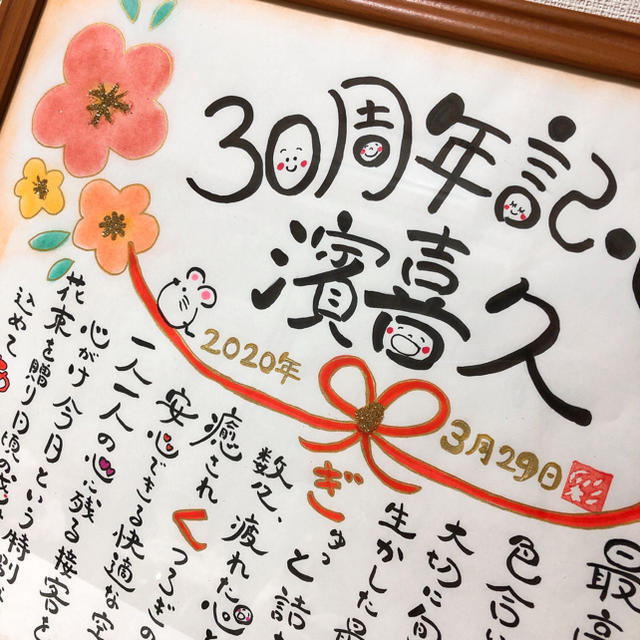 30周年記
濱喜久
2020年
3月29日
最高
色合
大切に旬
生かした最
ぎゅっと詰
数々、疲れた心と
癒され
くつろぎの
安心できる快適な空
一人一人の心に残る接客を
心がけ今日という特別
花束を贈り日頃の感
込めて